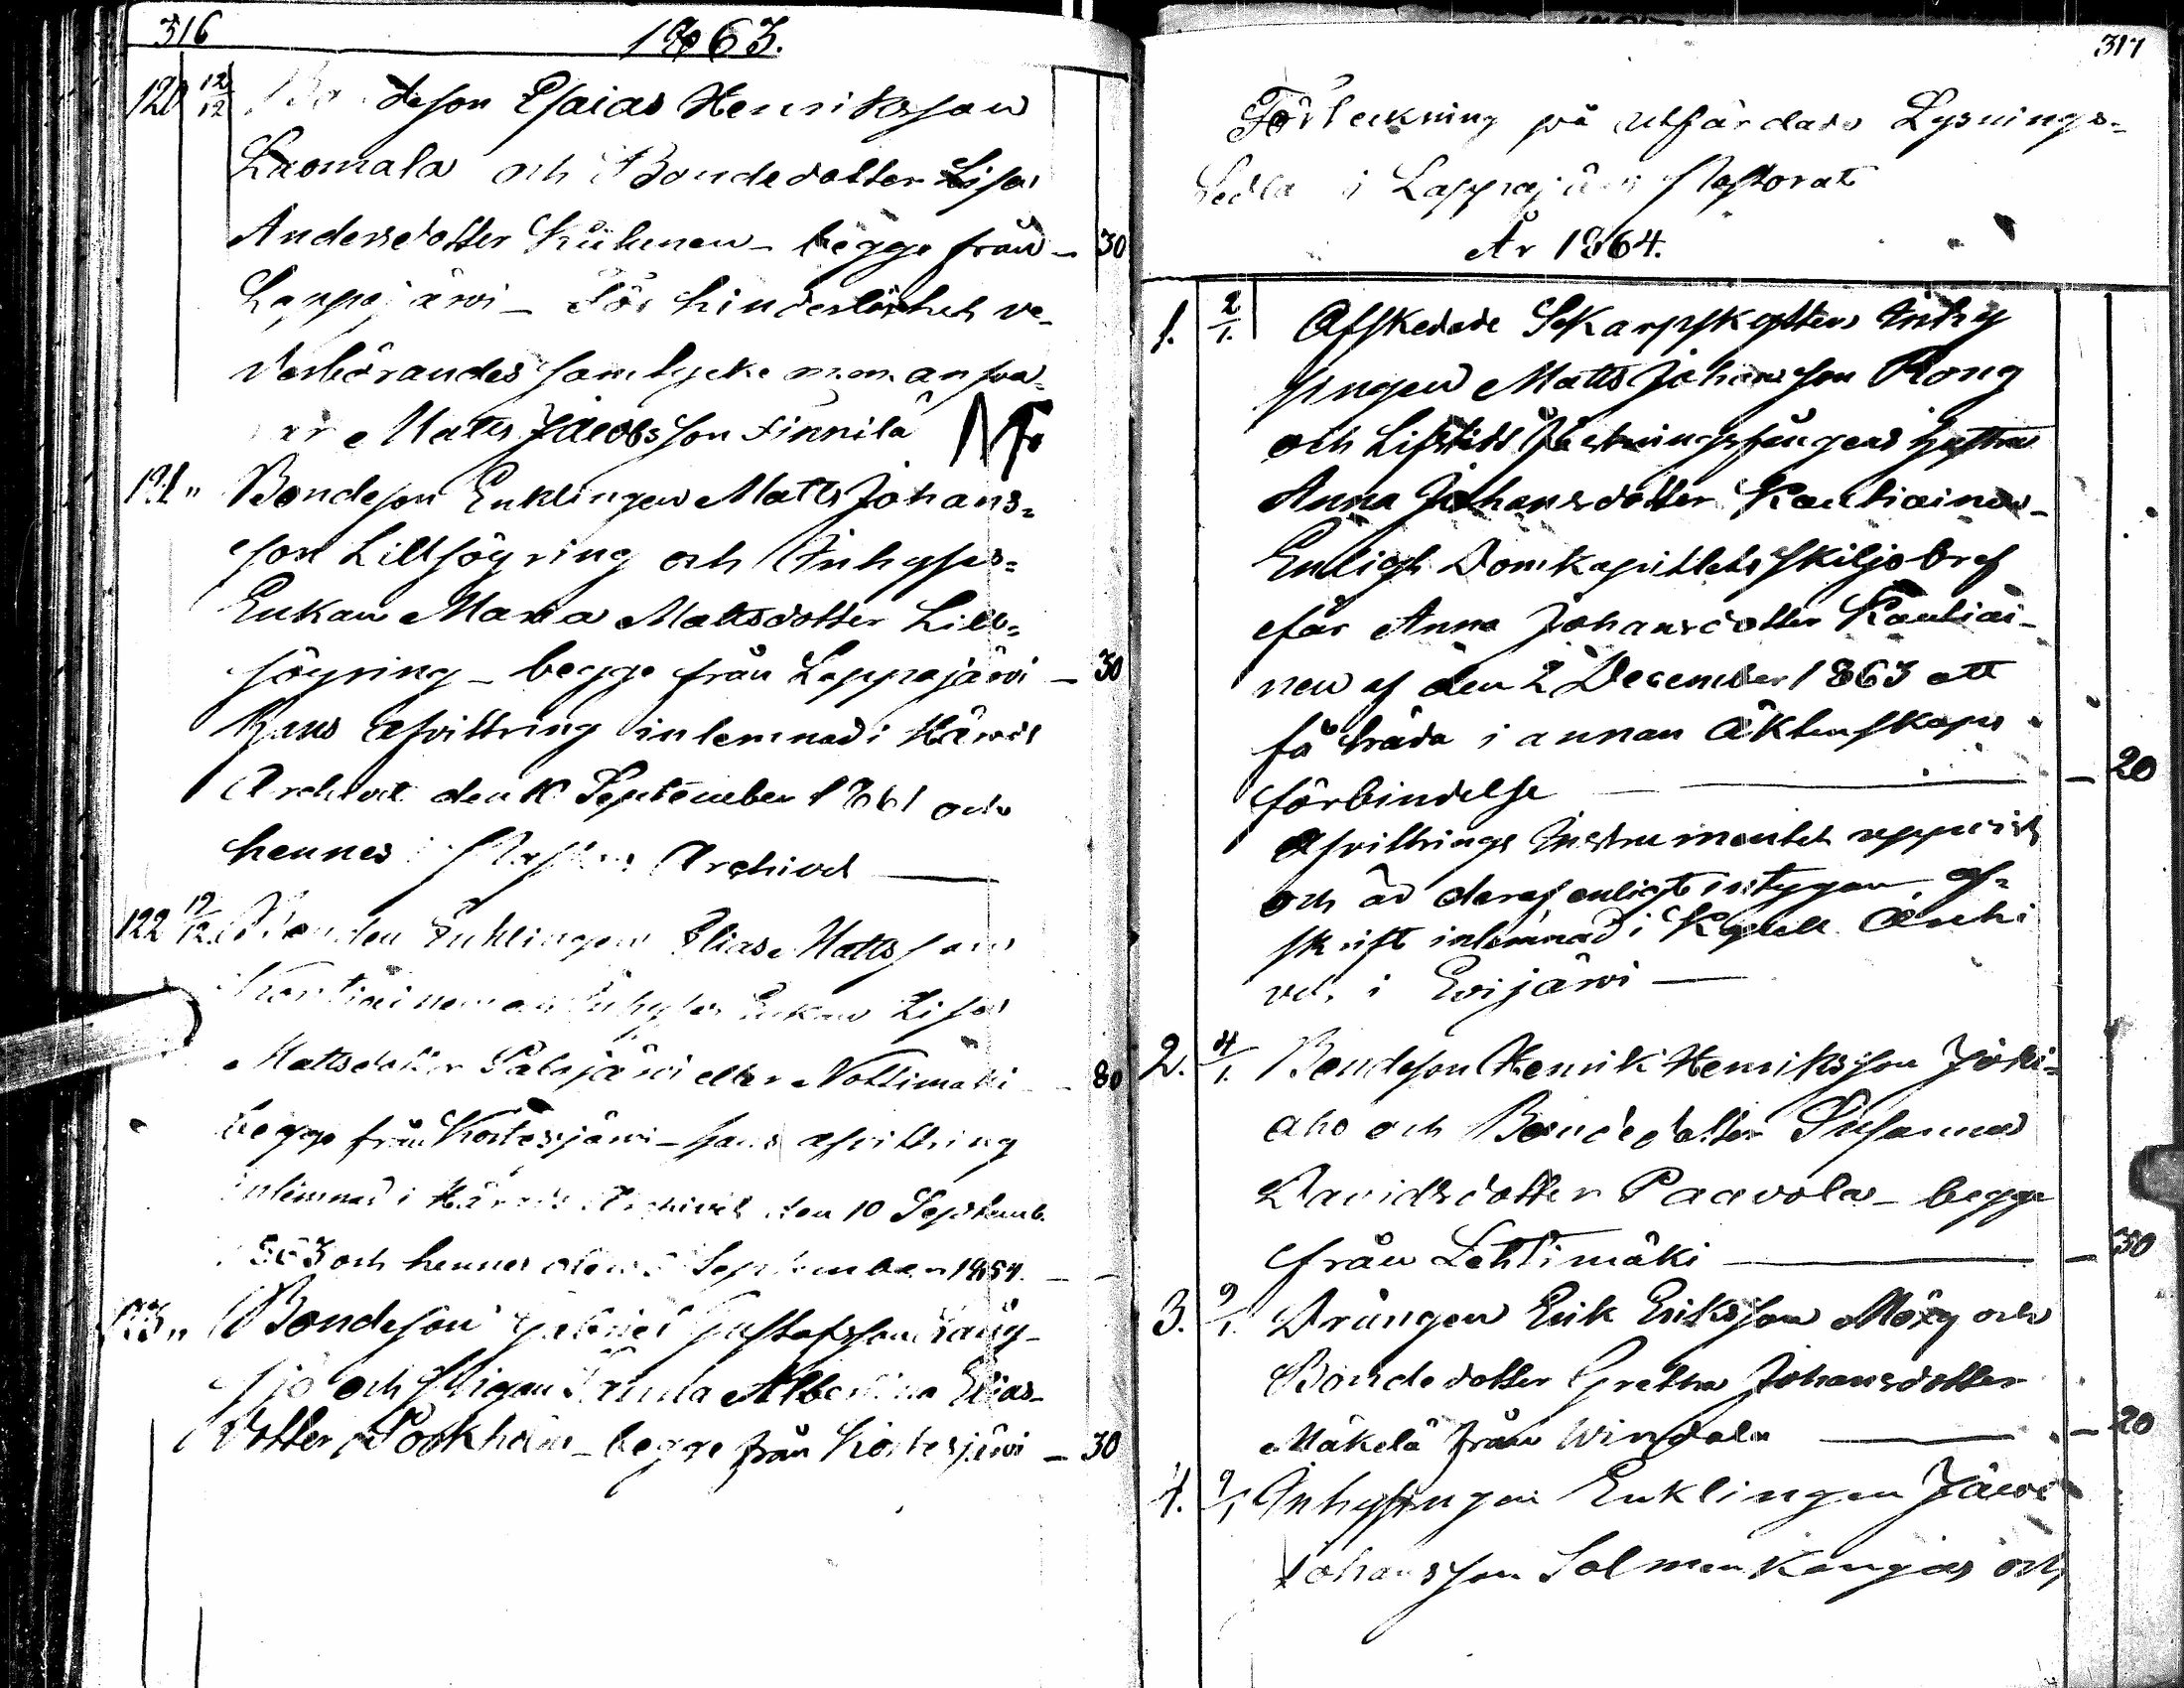 316
1863.
120 12/12 Bondeson Esaias Henriksson
Luomala och Bondedotter Lisa
Andersdotter Kuhunen - begge från - 30
Lappajärvi - För hinderlöshet ve-
derbörandes samtycke m.m. ansva-
rar Matts Jacobsson Finnilä
121 " Bondeson Enklingen Matts Johans=
son Lillsöyring och Inhyses=
Enkan Maria Mattsdotter Lill=
söyring - begge från Lappajärvi - 30
Hans afvittring inlemnad i Härads
Archivet den 10 September 1861 och
hennes i Pastors Archivet
122 12/12 Bonden Enklingen Elias Mattsson
Kortiainen och Inhyses Enkan Lisa
Mattsdotter Salojärvi eller Nottimäki - 80
begge från Kortesjärvi - hans afvittring
inlemnad i Härads Archivet den 10 Septemb.
1863 och hennes den September 1854.
123 " Bondeson Gabriel Gustafsson Lång-
sjö och Pigan Sanna Albertina Elias-
dotter Storkholm - begge från Kortesjärvi - 30
317
Förteckning på utfärdade Lysnings=
Sedlar i Lappajärvi Pastorat
År 1864.
1. 2/1. Afskedade Skarpskytten Inhy
singen Matts Johansson Kong
och Lifstids Häktningsfångens hustru
Anna Johansdotter Kautiainen -
Enligt Domkapitlets Skiljobref
får Anna Johansdotter Kautiai-
nen af den 2 December 1863 att
få träda i annan äktenskaps
förbindelse - 20
Afvittrings Instrumentet uppvist
och är deraf enligt intygan, af=
skrift inlemnad i Kapell Archi
vet i Evijärvi
2. 4/1. Bondeson Henrik Henriksson Joki=
aho och Bondedotter Susanna
Davidsdotter Paavola - begge
från Lehtimäki - 30
3. 9/1. Drängen Erik Eriksson Möxy och
Bondedotter Gretha Johansdotter
Mäkelä från Windala - 20
4. 9/1 Inhysingen Enklingen Jacob
Johansson Salmenkangas och